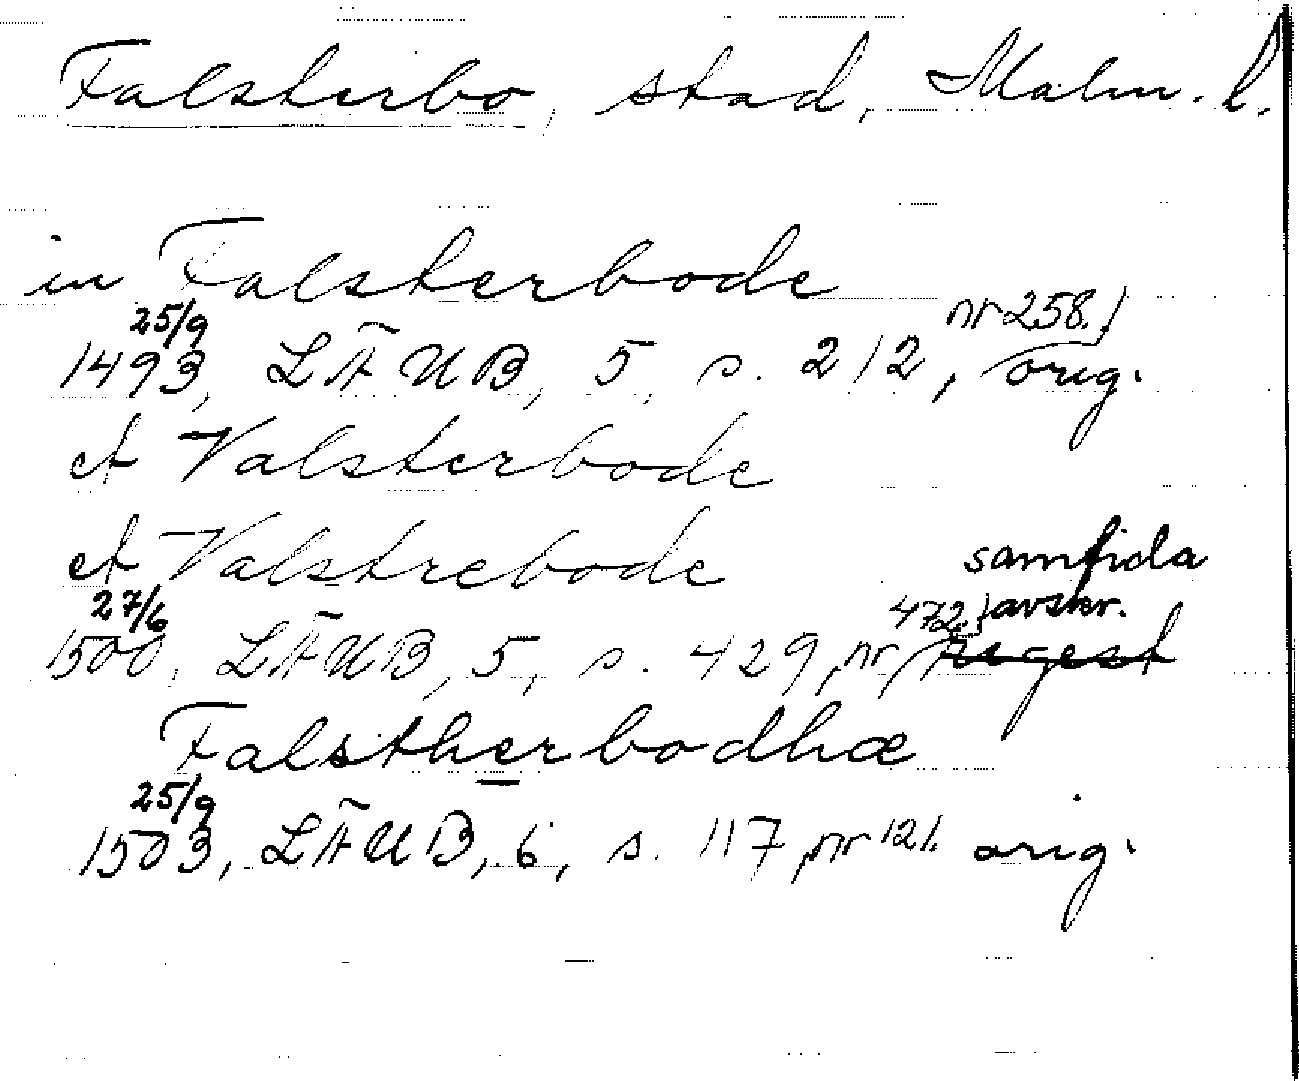 Falsterbo, stad, Malm. l.
in Falsterbode
25/9 nr 258.)
1493, LÄUB, 5, s. 212, orig.
et Valsterbode
et Valstrebode samtida
27/6 472.) avskr.
1500, LÄUB, 5, s. 429, nr regest
Falstherbodhæ
25/9
1503, LÄUB, 6, s. 117, nr 121. orig.